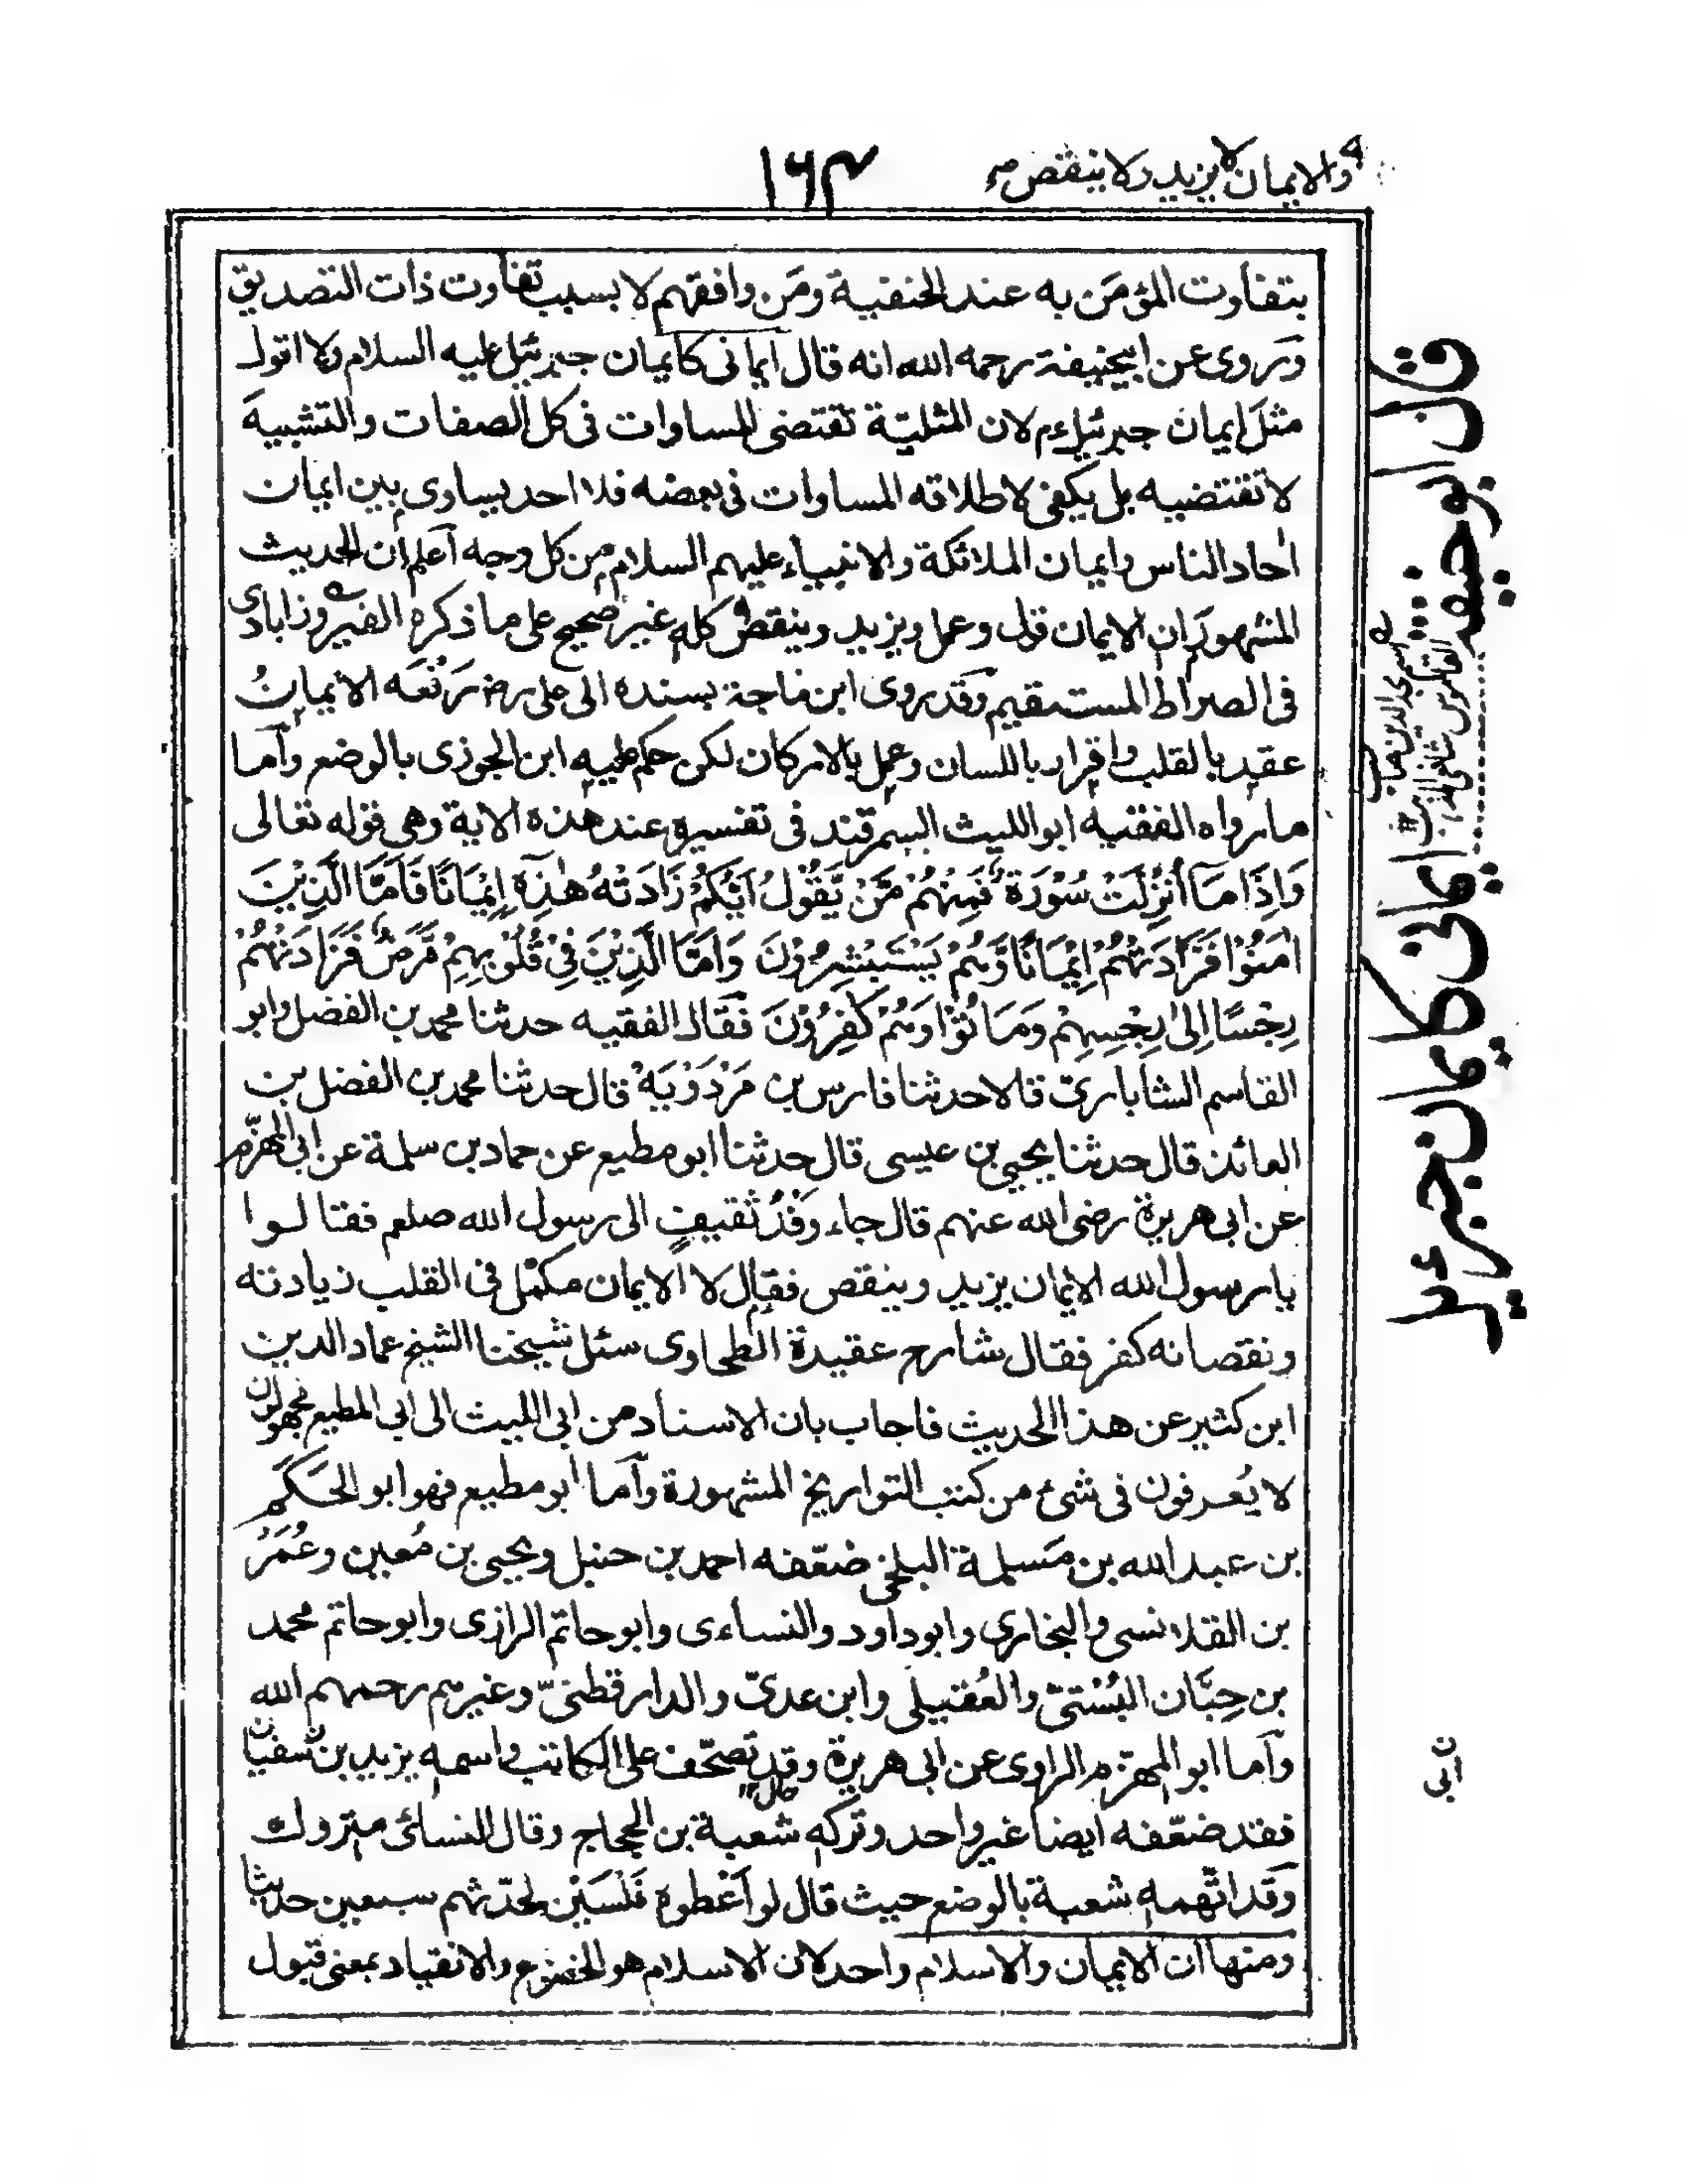 والايمان لا يزيد ولا ينقص
١٦٣
بتفاوت المؤمَن به عند الحنفية ومَن وافقهم لا بسبب تفاوت ذات التصديق
وَروى عن ابيحنيفة رحمه الله انه قال ايمانى كايمان جبرئيل عليه السلام ولا اقول
مثلَ ايمان جبرئيل ء م لان المثليّة تقتضى المساوات فى كل الصفات والتشبيه
لا تقتضيه بل يكفى لاطلاقه المساوات فى بعضه فلا احد يساوى بين ايمان
اٰحاد الناس وايمان الملائكة والانبياء عليهم السلام من كل وجه آعلم أن الحديث
المشهور ان الايمان قول وعمل ويزيد وينقص كله غير صحيح على ما ذكره الفيروزابادى
فى الصراط المستقيم وقد روى ابن ماجة بسنده الى على رض رَفعَه الايمانُ
عقد بالقلب واقرار باللسان وعمل بالاركان لكن حكم عليه ابن الجوزى بالوضع وآما
ما رواه الفقيه ابو الليث السمرقند فى تفسيره عند هذه الاية وهى قوله تعالى
وَاِذَا مَآ اُنْزِلَتْ سُوْرَةٌ فَمِنْهُمْ مَّنْ يَّقُوْلُ اَيُّكُمْ زَادَتْهُ هٰذِهٓ اِيْمَانًا فَاَمَّا الَّذِيْنَ
اٰمَنُوْا فَزَادَتْهُمْ اِيْمَانًا وَّهُمْ يَسْتَبْشِرُوْنَ وَاَمَّا الَّذِيْنَ فِىْ قُلُوْبِهِمْ مَّرَضٌ فَزَادَتْهُمْ
رِجْسًا اِلىٰ رِجْسِهِمْ وَمَاتُوْا وَهُمْ كٰفِرُوْنَ فقال الفقيه حدثنا محمد بن الفضل وابو
القاسم الشاباذىّ قالا حدثنا فارس بن مَرْدَوَيَهْ قال حدثنا محمد بن الفضل بن
العائذ قال حدثنا يحيى بن عيسى قال حدثنا ابو مطيع عن حماد بن سلمة عن ابى المهزّم
عن ابى هريرة رضى الله عنهم قال جاء وَفْدُ ثقيفٍ الى رسول الله صلعم فقالوا
يا رسول الله الايمان يزيد وينقص فقال لا الايمان مكمّل فى القلب زيادته
ونقصانه كفر فقال شارح عقيدة الطحاوى سئل شيخنا الشيخ عماد الدين
ابن كثير عن هذا الحديث فاجاب بان الاسناد من ابى الليث الى ابى المطيع مجهولون
لا يُعرفون فى شئ من كتب التواريخ المشهورة وآما ابو مطيع فهو ابو الحَكَم
بن عبد الله بن مَسلمة البلخى ضعّفه احمد بن حنبل ويحيى بن مُعين وعُمَرُ
بن القلانسى والبخارى وابو داود والنساءى وابو حاتم الرازى وابو حاتم محمد
بن حِبَّان البُسْتىّ والعُقيلى وابن عدىّ والدارقطنىّ وغيرهم رحمهم الله
وآما ابو المهزّم الراوى عن ابى هريرة وقد تصحّف على الكاتب واسمه يزيد بن سفيان
فقد ضعّفه ايضا غير واحد وتركه شعبة بن الحجاج وقال النسائى متروك
وَقد اتّهمه شعبة بالوضع حيث قال لو اَعْطوه فَلْسَيْن لحدّثهم سبعين حديثا
ومنها ان الايمان والاسلام واحد لان الاسلام هو الخضوع والانقياد بمعنى قبول
قال ابو حنيفه
ايمانى كايمان جبرئيل
ن ابى